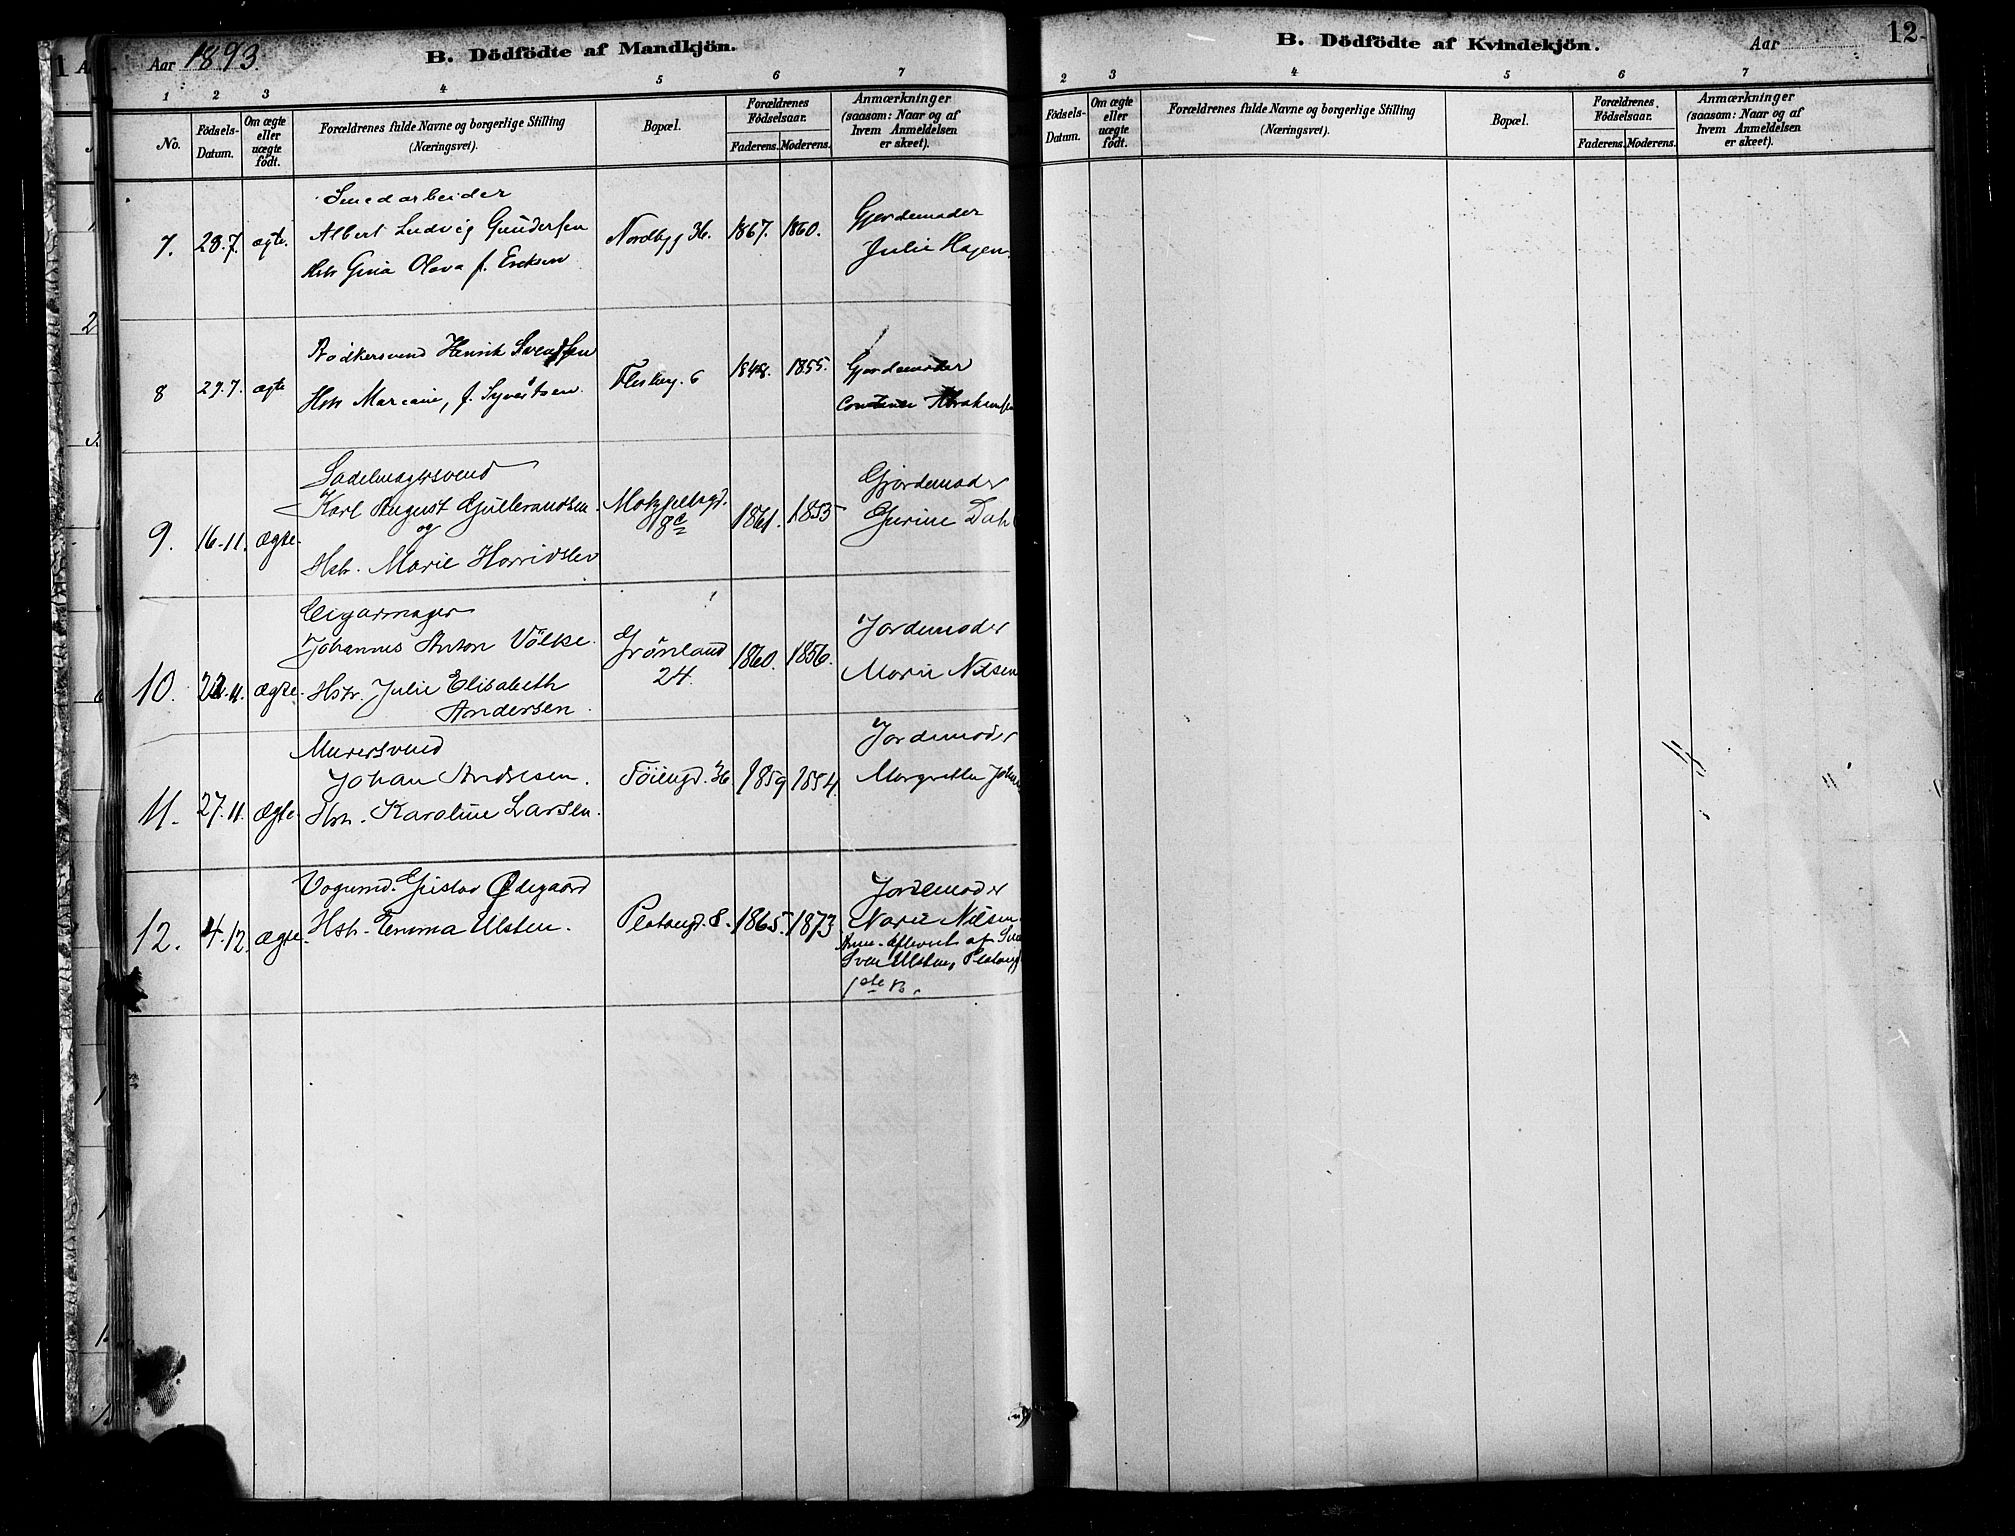 Aar 1893.
B. Dödfödte af Mandkjön.
1 2 3 4 5 6 7
No.
Födsels-Datum.
Om ægte eller uægte födt.
Forældrenes fulde Navne og borgerlige Stilling (Næringsvei).
Bopæl.
Forældrenes Födselsaar.
Faderens. Moderens.
Anmærkninger (saasom: Naar og af hvem Anmeldelsen er skeet).
Smedarbeider
7. 28.7. ægte. Albert Ludvig Gundersen Nordbyg 36. 1867. 1860. Gjordemoder
Hstr Gina Olava f. Eriksen Julie Hagen.
8 29.7. ægte Bødkersvend Henrik Svendsen Flesbeg. 6 1848. 1855. Gjordemoder
Hstr Marcanie, f. Syvertsen. Abrahamsen
Sadelmagersvend Gjordemoder
9. 16-11. ægte Karl August Gulbrandsen Motzfeldtsgd. 8c 1861. 1853 Gurine Dahl
og
Hstr. Marie Horridslev
Cigarmager
10. 22.11. ægte. Johannes Anton Völke. Grønland 24. 1860. 1856. Jordemoder
Hstr. Julie Elisabeth Marie Nilsen
Andersen.
Murersvend Jordemoder
11. 27.11. ægte. Johan Andresen. Töiengd. 36. 1859 1854. Margrethe
Hstr. Karoline Larsen.
12. 4.12. ægte. Vognmd. Gustav Ødegaard Platougd. 8. 1865. 1873 Jordemoder
Hstr. Emma Ulsten. Marie Nilsen
Anm. afleveret af
Sven Ulsten, Platougd
1ste B.
B. Dödfödte af Kvindekjön. Aar 12
2 3 4 5 6 7
Födsels-Datum.
Om ægte eller uægte födt.
Forældrenes fulde Navne og borgerlige Stilling (Næringsvei).
Bopæl.
Forældrenes Födselsaar.
Faderens. Moderens.
Anmærkninger (saasom: Naar og af hvem Anmeldelsen er skeet).